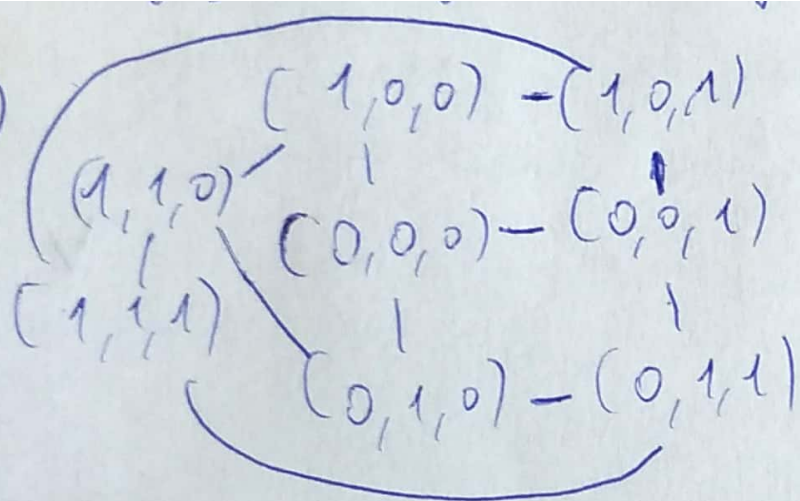 (1,0,0) - (1,0,1)
(1,1,0)
(0,0,0) - (0,0,1)
(1,1,1)
(0,1,0) - (0,1,1)